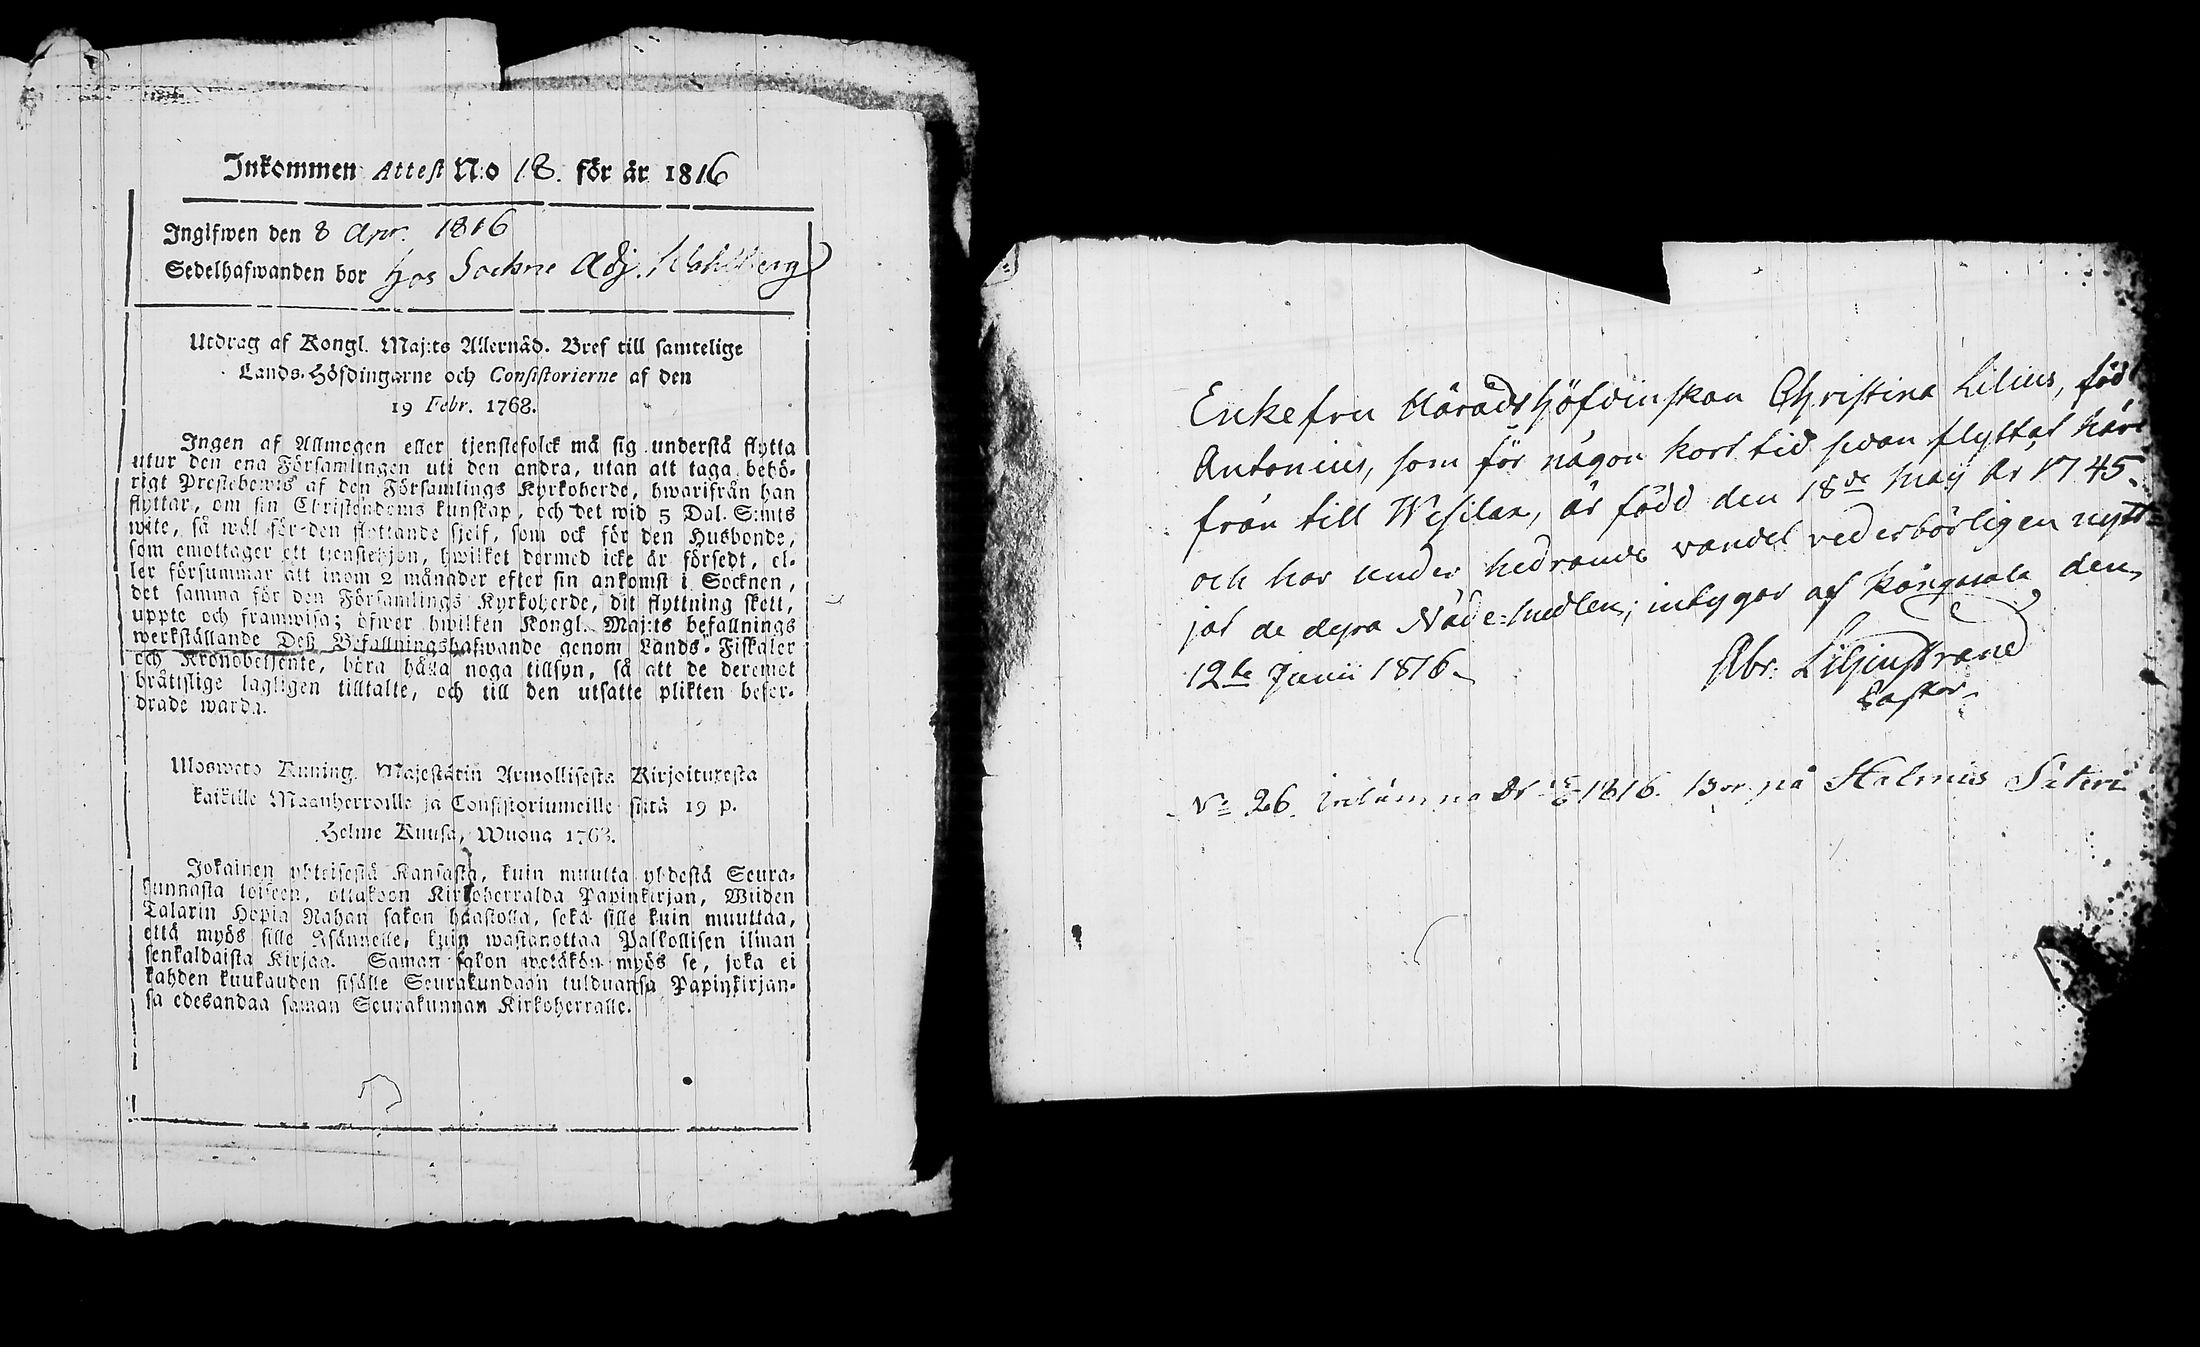 Inkommen Attest N:o 18. för år 1816
Ingifwen den 8 Apr. 1816
Sedelhafwanden bor hos Sockne Adj. Wahlberg
Utdrag af Kongl. Maj:ts Allernåd. Bref till samtelige
Lands-Höfdingarne och Consistorierne af den
19 Febr. 1768.
Ingen af Allmogen eller tjenstefolck må sig understå flytta
utur den ena Församlingen uti den andra, utan att taga behö-
rigt Prestebewis af den Församlings Kyrkoherde, hwarifrån han
flyttar, om sin Christendoms kunskap, och det wid 5 Dal. S:mts
wite, så wäl för den flyttande sjelf, som ock för den Husbonde,
som emottager ett tjenstehjon, hwilket dermed icke är försedt, el-
ler försummar att inom 2 månader efter sin ankomst i Socknen,
det samma för den Församlings Kyrkoherde, dit flyttning skett,
uppte och framwisa; öfwer hwilken Kongl. Maj:ts befallnings
werkställande Deß Befallningshafwande genom Lands-Fiskaler
och Kronobetjente, böra hålla noga tillsyn, så att de deremot
bråttslige lagligen tilltalte, och till den utsatte plikten befor-
drade warda.
Ulosweto Kuning. Majestätin Armollisesta Kirjoituxesta
kaikille Maanherroille ja Consistoriumeille siitä 19 p.
Helme Kuusa, Wuona 1768.
Jokainen yhteisestä Kansasta, kuin muutta yhdestä Seura-
kunnasta toiseen, ottakoon Kirkoherralda Papinkirjan, Wiiden
Talarin Hopia Rahan sakon haastolla, sekä sille kuin muuttaa,
että myös sille Isännelle, kuin wastanottaa Palkollisen ilman
senkaldaista Kirjaa. Saman sakon wetäkön myös se, joka ei
kahden kuukauden sisälle Seurakundaan tulduansa Papinkirjan-
sa edesandaa saman Seurakunnan Kirkoherralle.
Enkefru Häradshöfdinskan Christina Lilius, född
Antonius, som för någon kort tid sedan flyttat häri
från till Wesilax, är född den 18de Maij År 1745.
och har under hedrande vandel vederbörligen nytt-
jat de dyra Nåde-Medlen; intygar af Kangasala den
12te Junii 1816.
Abr. Liljenstrand
Pastor.
No 26. 1816. Bor på Halmus Säteri